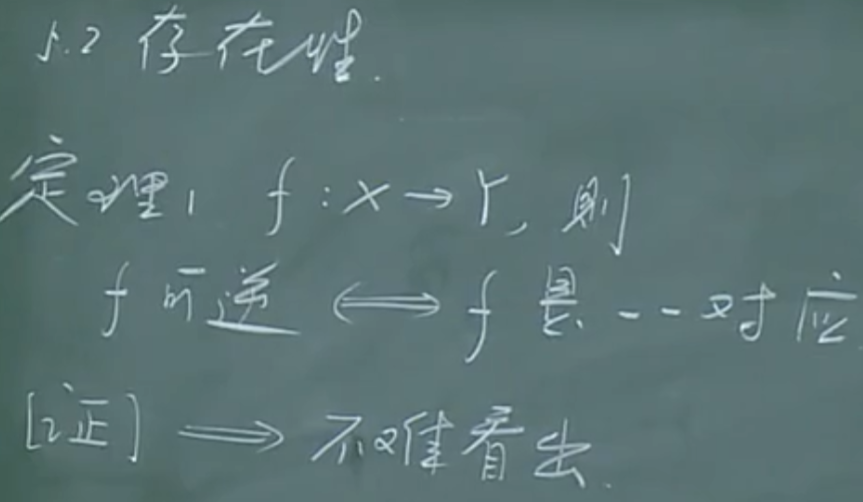 5.2 存在性.
定理1 f:X→Y, 则
f可逆 ⟺ f是一一对应
[证] ⟹ 不难看出.